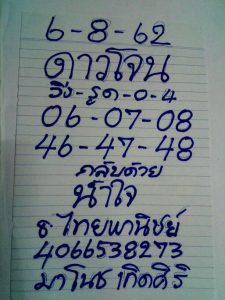 6-8-62
ดาวโจน
วิ่ง-รูด-0-4
06-07-08
46-47-48
กลับด้วย
น้ำใจ
ธ ไทยพานิชย์
4066538273
มาโนช เกิดศิริ